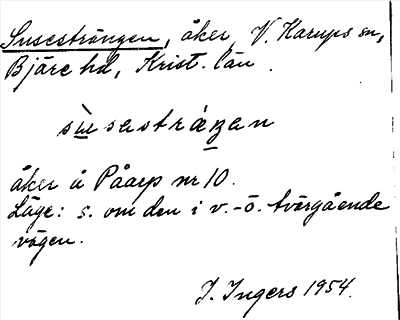 Susesträngen, åker, V. Karups sn,
Bjäre hd, Krist. län.
sùsestráŋan
åker å Påarp nr 10.
Läge: s. om den i v.-ö. tvärgående
vägen.
I. Ingers 1954.